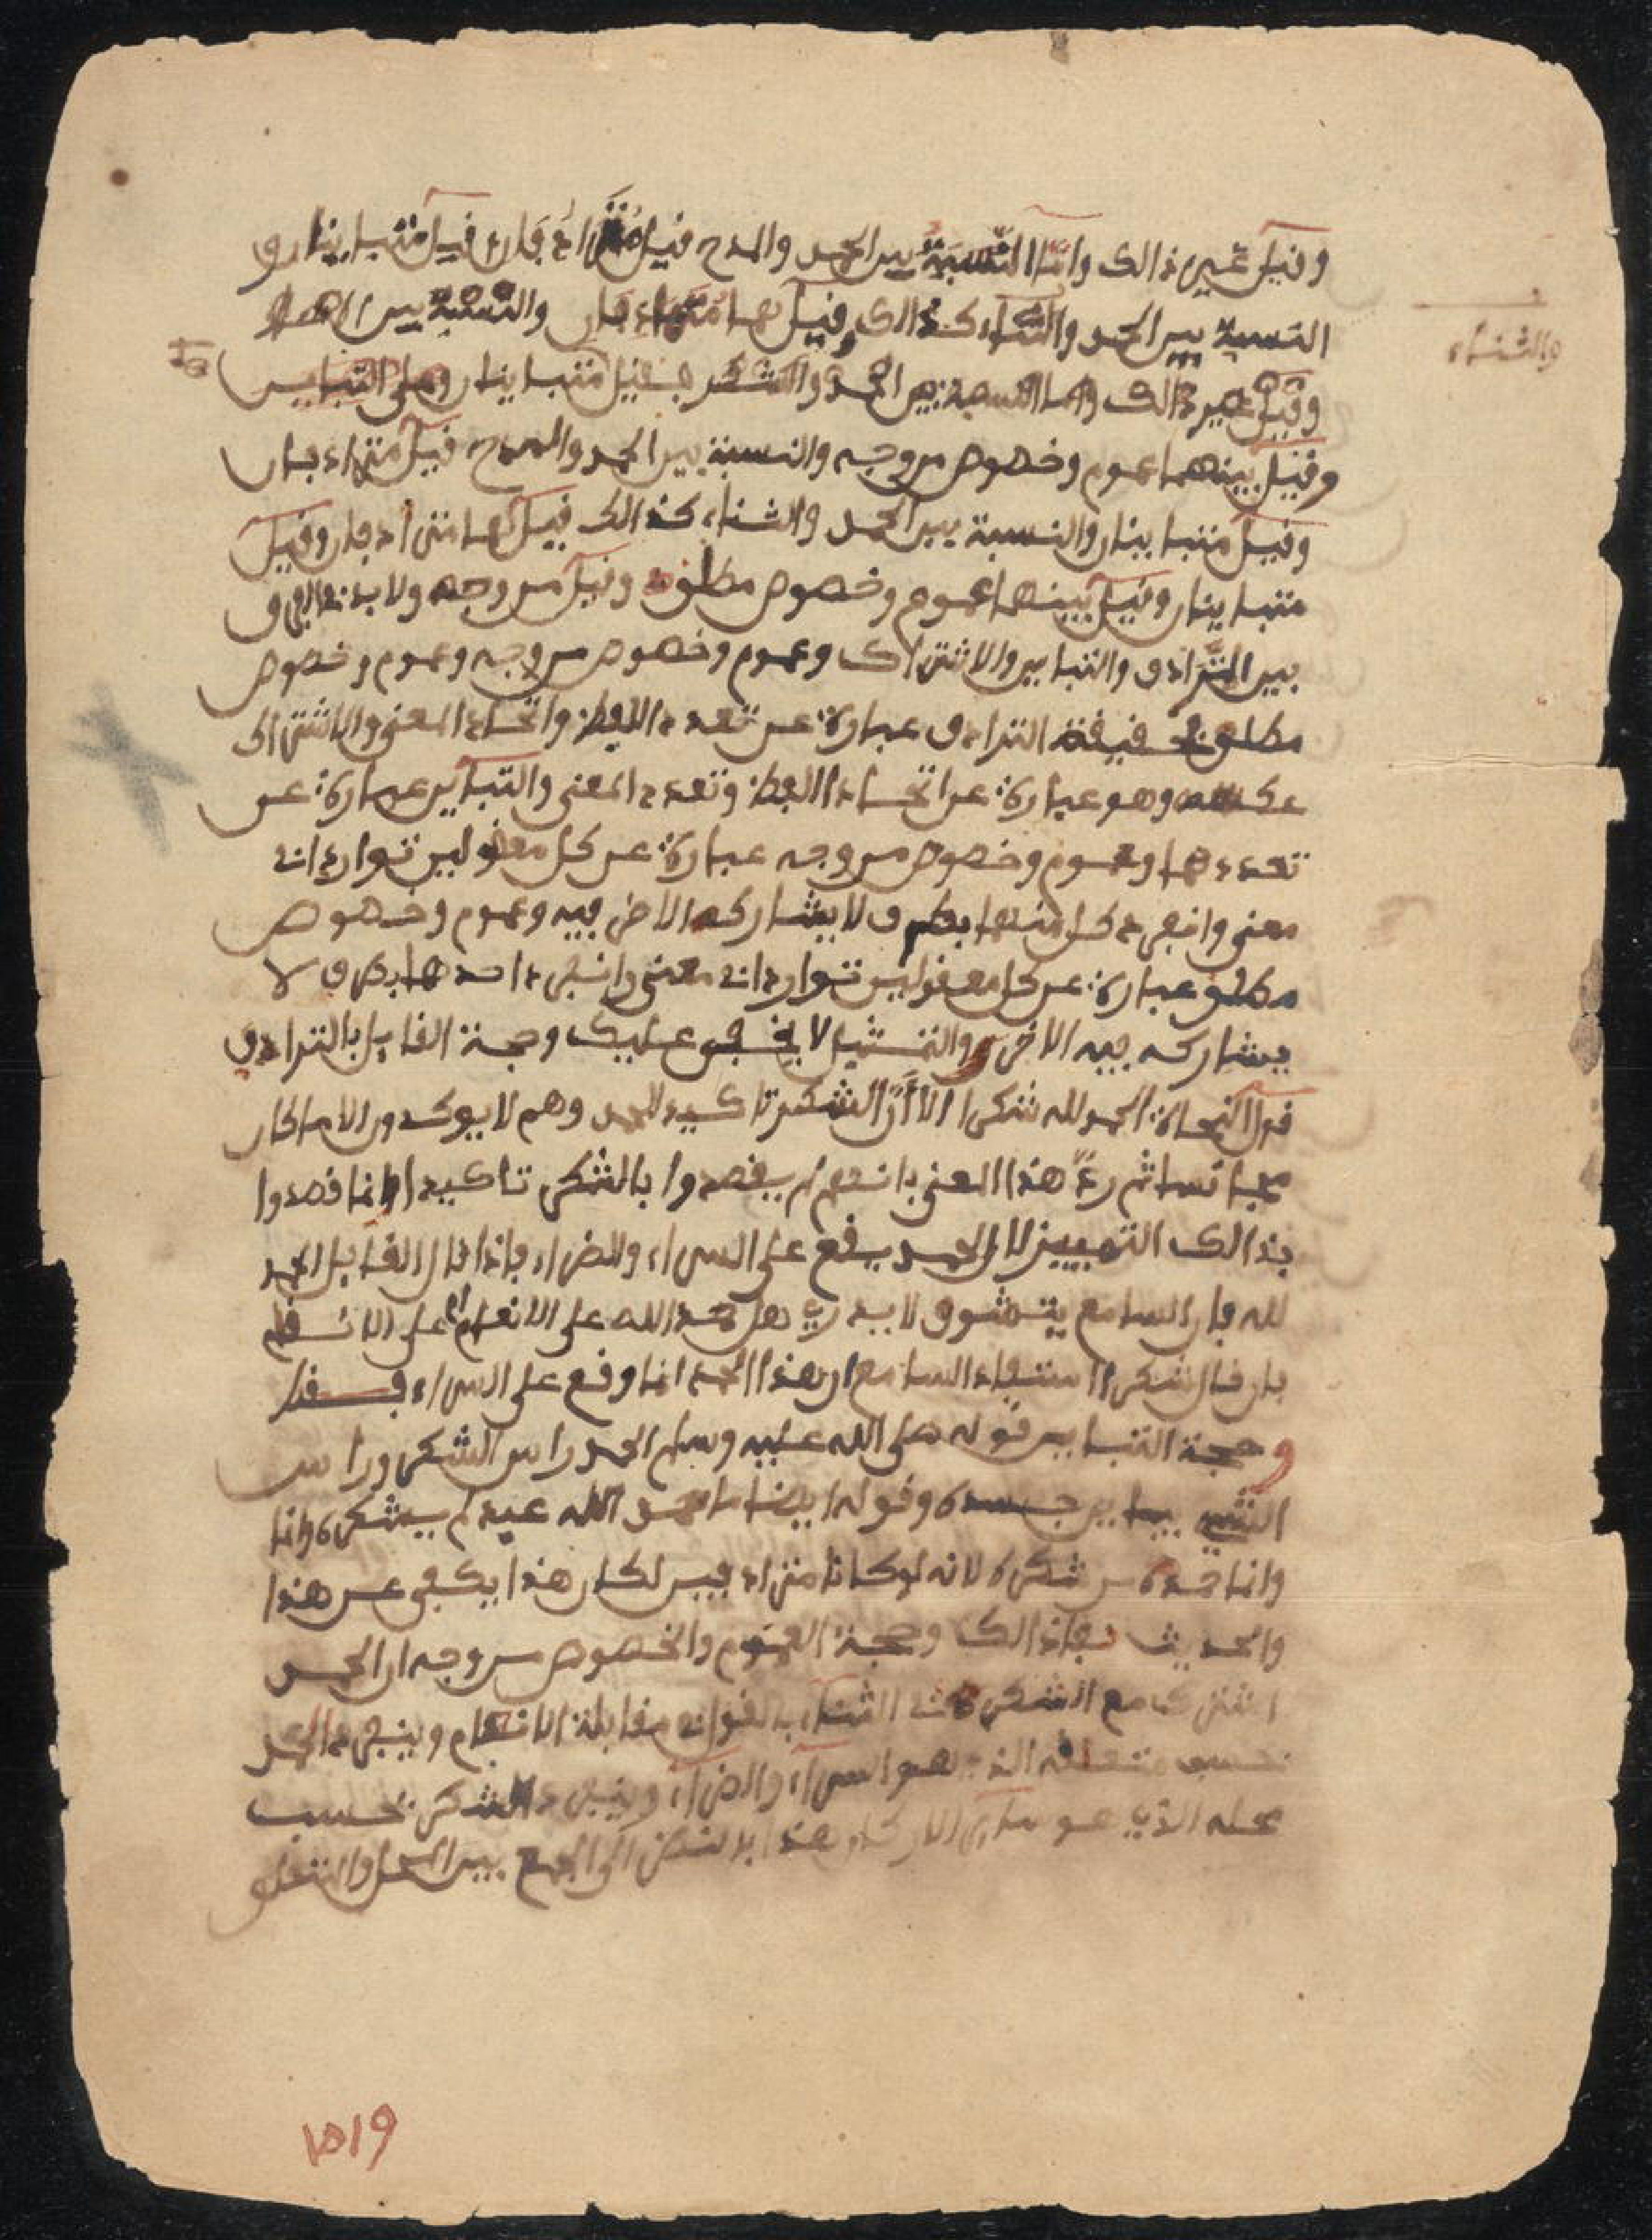 وقيل غير ذالك وامّا النّسبة بين الحمد والمدح فيل مترادفان فيل متباينان و
النسبة بين الحمد والثناء كذالك وقيل هما مترادفان والنسبة بين
والثناء
وقيل غير ذالك واما النسبة بين الحمد والشكر فقيل متباينان وعلى التباين
وقيل بينهما عموم وخصوص من وجه والنسبة بين الحمد والمدح فيل مترادفان
وقيل متباينان والنسبة بين الحمد والثناء كذالك فيل هما مترادفان وقيل
متباينان وقيل بينهما عموم وخصوص مطلق وقيل من وجه ولا بد من الفرق
بين الترادف والتباين والاشتراك وعموم وخصوص من وجه وعموم وخصوص
مطلق فحقيقة الترادف عبارة عن تعدد اللفظ واتحاد المعنى والاشتراك
عكسه وهو عبارة عن اتحاد اللفظ وتعدد المعنى والتباين عبارة عن
تعددهما وعموم وخصوص من وجه عبارة عن كل معقولين تواردا في
معنى وانفرد كل منهما بطرف لا يشاركه الاخر فيه وعموم وخصوص
مطلق عبارة عن كل معقولين تواردا في معنى وانفرد احدهما بطرف لا
يشاركه فيه الاخر والتمثيل لا يخفى عليك وحجة القايل بالترادف
قول النحاة الحمد لله شكرا الا أنّ الشكر تاكيد للحمد وهم لا يوكدون الا ما كان
مجانسا ثم ردّ هذا المعنى بانهم لم يقصدوا بالشكر تاكيدا وانما قصدوا
بذالك التمييز لان الحمد يقع على السراء والضراء فاذا قال القايل الحمد
لله فان السامع يتشوق لا يدري هل حمد الله على الانعام ام على الانتقام
فان قال شكرا استفاد السامع ان هذا الحمد انما وقع على السراء فقط
وحجة التباين قوله صلى الله عليه وسلم الحمد راس الشكر وراس
الشيء يباين جسده وقوله ايضا ما حمد الله عبد لم يشكره وانما
وانما حمده من شكره لانه لو كانا مترادفين لكان هذا يكفي عن هذا
والحديث ذالك وحجة العموم والخصوص من وجه ان الحمد
اشترك مع الشكر في الثناء بالقول في مقابلة الانعام وينفرد الحمد
بحسب متعلقه الذي هو السراء والضراء وينفرد الشكر بحسب
محله الذي هو ساير الاركان هذا بالنظر الى الجمع بين المحل والمتعلق